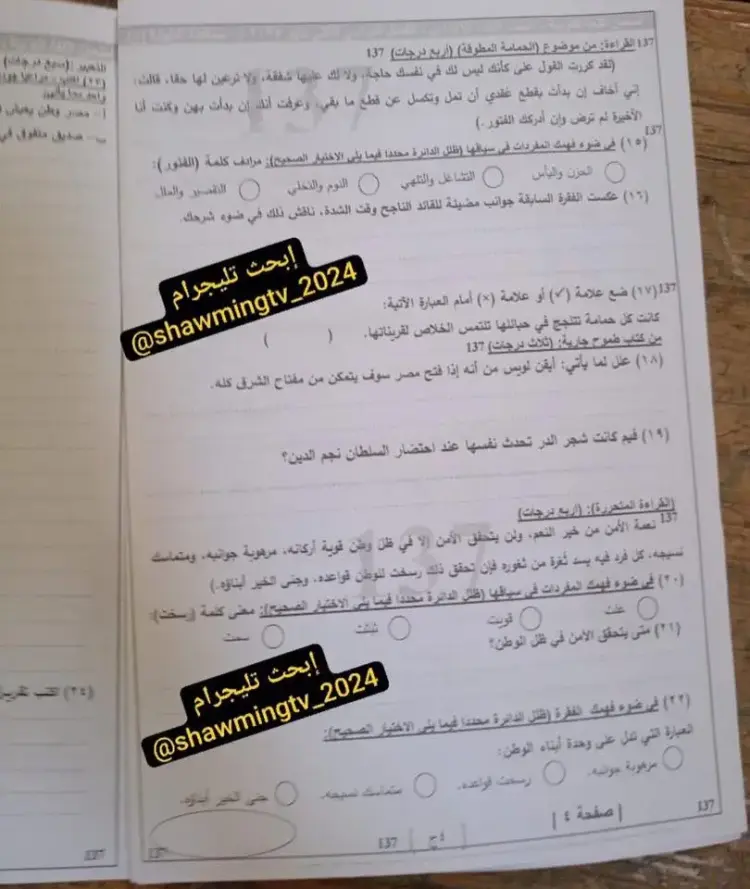 137 القراءة: من موضوع (الحمامة المطوقة) (أربع درجات) 137
(لقد كررت القول على كأنك ليس لك في نفسك حاجة، ولا لك عليها شفقة، ولا ترعين لها حقا، قالت:
إني أخاف إن بدأت بقطع عقدي أن تمل وتكسل عن قطع ما بقي، وعرفت أنك إن بدأت بهن وكنت أنا
الأخيرة لم ترض وإن أدركك الفتور.)
137
(١٥) في ضوء فهمك المفردات في سياقها (ظلل الدائرة محددا فيما يلي الاختيار الصحيح): مرادف كلمة (الفتور):
الحزن واليأس
التشاغل والتلهي
النوم والتخلي
التقصير والملل
(١٦) عكست الفقرة السابقة جوانب مضيئة للقائد الناجح وقت الشدة، ناقش ذلك في ضوء شرحك.
إبحث تليجرام
@shawmingtv_2024
137(١٧) ضع علامة (✓) أو علامة (×) أمام العبارة الآتية:
كانت كل حمامة تتلجج في حبائلها تلتمس الخلاص لقريناتها. ( )
من كتاب طموح جارية: (ثلاث درجات) 137
(١٨) علل لما يأتي: أيقن لويس من أنه إذا فتح مصر سوف يتمكن من مفتاح الشرق كله.
(١٩) فيم كانت شجر الدر تحدث نفسها عند احتضار السلطان نجم الدين؟
(القراءة المتحررة): (أربع درجات)
137 نعمة الأمن من خير النعم، ولن يتحقق الأمن إلا في ظل وطن قوية أركانه، مرهوبة جوانبه، ومتماسك
نسيجه، كل فرد فيه يسد ثغرة من ثغوره فإن تحقق ذلك رسخت للوطن قواعده، وجنى الخير أبناؤه.)
(٢٠) في ضوء فهمك المفردات في سياقها (ظلل الدائرة محددا فيما يلي الاختيار الصحيح): معنى كلمة (رسخت):
علت
قويت
ثبتت
سمت
(٢١) متى يتحقق الأمن في ظل الوطن؟
إبحث تليجرام
@shawmingtv_2024
(٢٢) في ضوء فهمك الفقرة (ظلل الدائرة محددا فيما يلي الاختيار الصحيح):
العبارة التي تدل على وحدة أبناء الوطن:
مرهوبة جوانبه.
رسخت قواعده.
متماسك نسيجه.
جنى الخير أبناؤه.
137
| صفحة ٤ |
137
137
137
137
(٢٤) اكتب